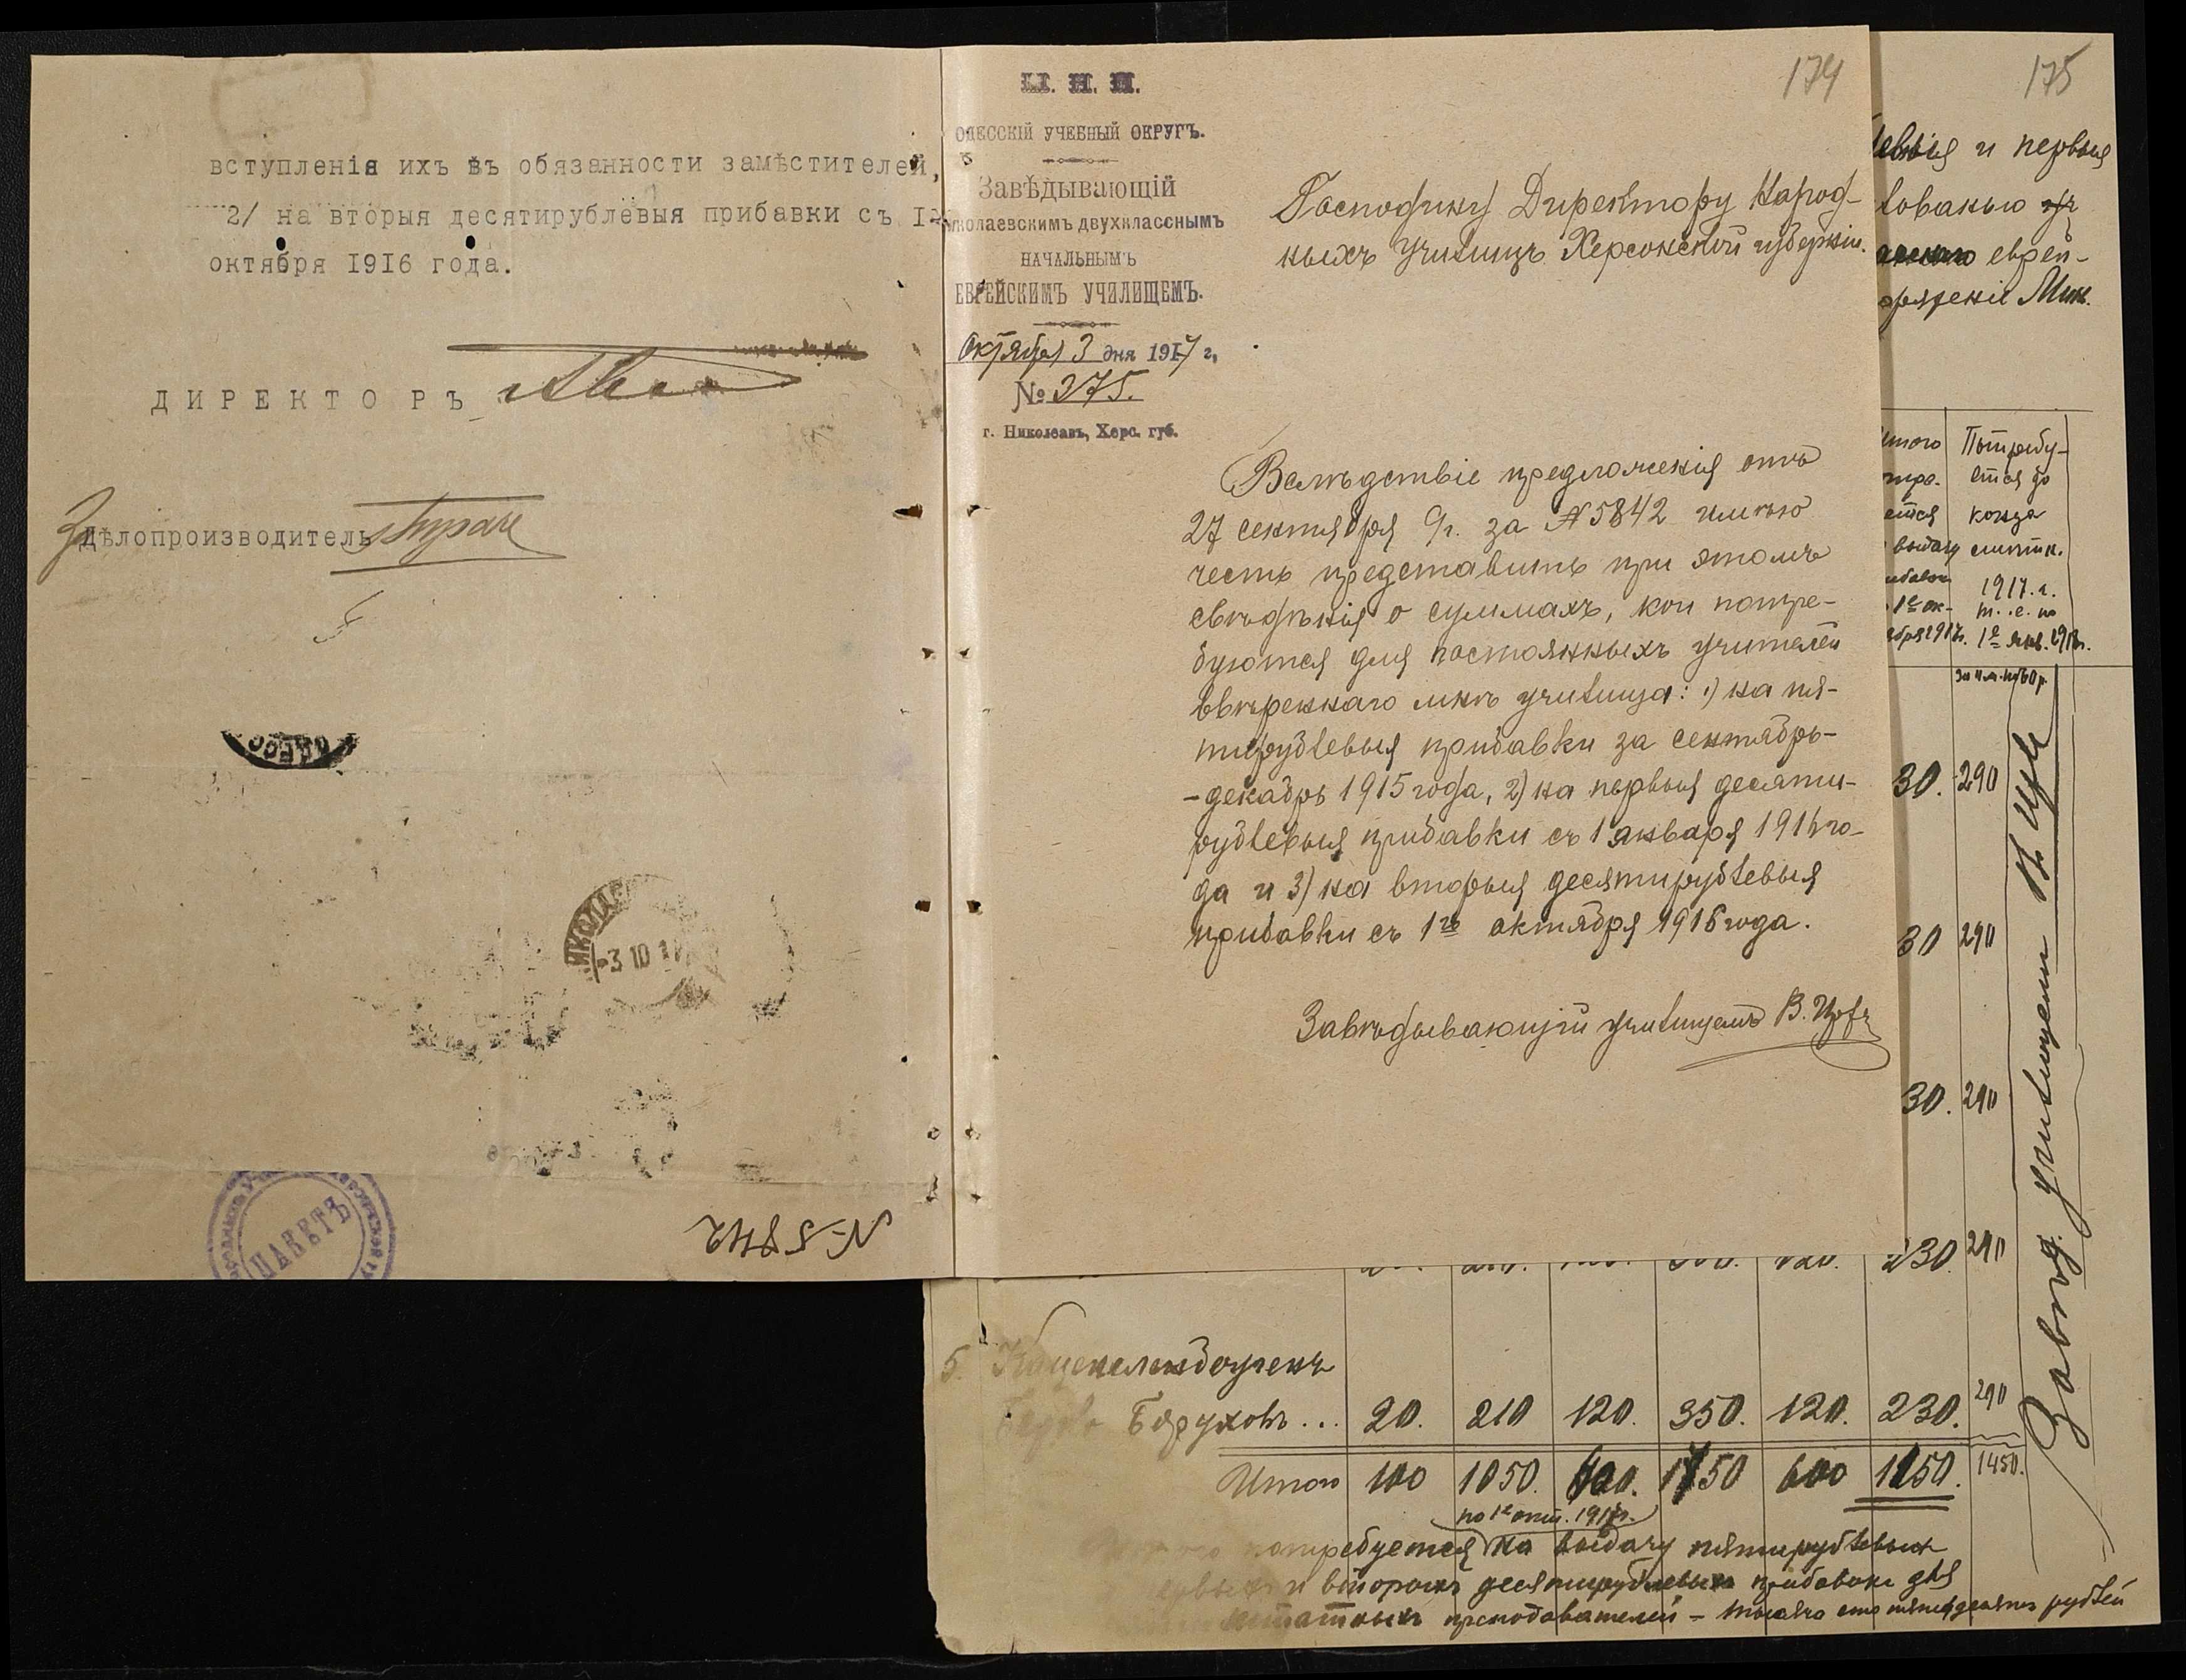 вступленія ихъ въ обязанности замѣстителей,
2/ на вторыя десятирублевыя прибавки съ I-
октября 1916 года.
ДИРЕКТОРЪ
дѣлопроизводитель
-3 10 1
ПАКЕТЪ
№ 5842
174
М. Н. П.
ОДЕССКІЙ УЧЕБНЫЙ ОКРУГЪ.
Завѣдывающій
Николаевскимъ двухкласснымъ
НАЧАЛЬНЫМЪ
ЕВРЕЙСКИМЪ УЧИЛИЩЕМЪ.
Октября 3 дня 1917 г,
№ 375.
г. Николаевъ, Херс. губ.
Господину Директору Народ-
ныхъ училищъ Херсонской губерніи.
Вслѣдствіе предложенія отъ
27 сентября с/г. за № 5842 имѣю
честь представить при этомъ
свѣдѣнія о суммахъ, кои потре-
буются для постоянныхъ учителей
ввѣреннаго мнѣ училища: 1) на пя-
тирублевыя прибавки за сентябрь-
-декабрь 1915 года, 2) на первыя десяти-
рублевыя прибавки съ 1 января 1916 го-
да и 3) на вторыя десятирублевыя
прибавки съ 1го октября 1916 года.
Завѣдывающій училищемъ В.
175
левыя и первыя
еврей-
оряженіе Мин.
Потребу-
ется до
конца
выдачу смѣтн.
1917. г.
1е ок- т. е. по
ября 1917г. 1е янв. 1918г.
30. 290
30 290
30. 290
230. 290
5.
Боруховъ... 20. 210 120. 350. 120. 230. 290
Итого 100 1050. 600. 1750 600 1150. 1450.
по 1е окт. 1917г.
потребуется на выдачу пятирублевыхъ
и вторыхъ десятирублевыхъ прибавокъ для
штатныхъ преподавателей - тысяча сто пятьдесятъ рублей
Завѣд. училищемъ